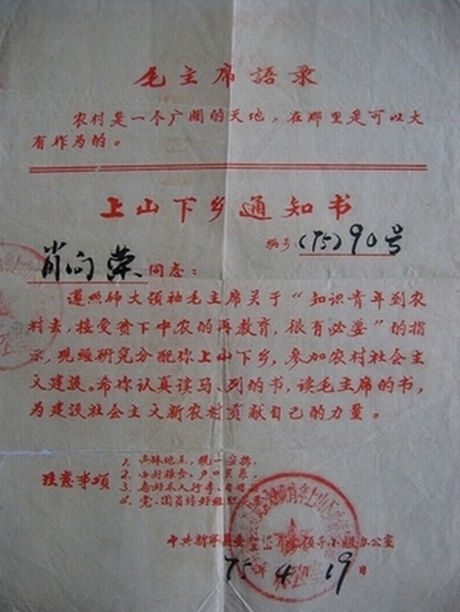 毛主席語录
农村是一个广阔的天地，在那里是可以大
有作为的。
上山下乡通知书
编号(75)90号
肖向荣同志：
遵照伟大领袖毛主席关于“知识青年到农
村去，接受贫下中农的再教育，很有必要”的指
示，现经研究分配你上山下乡，参加农村社会主
义建设。希你认真读马、列的书，读毛主席的书，
为建设社会主义新农村贡献自己的力量。
注意事项
1. 具体地点，统一安排。
2. 办好粮食、户口关系。
3. 备好本人行李、日用
4. 党、团员转好组织关系
中共新 领导小组办公室
75 4 19日